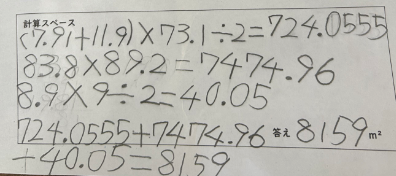 計算スペース
(7.91+11.9)×73.1÷2=724.0555
83.8×89.2=7474.96
8.9×9÷2=40.05
724.0555+7474.96 答え 8159 m²
+40.05=8159